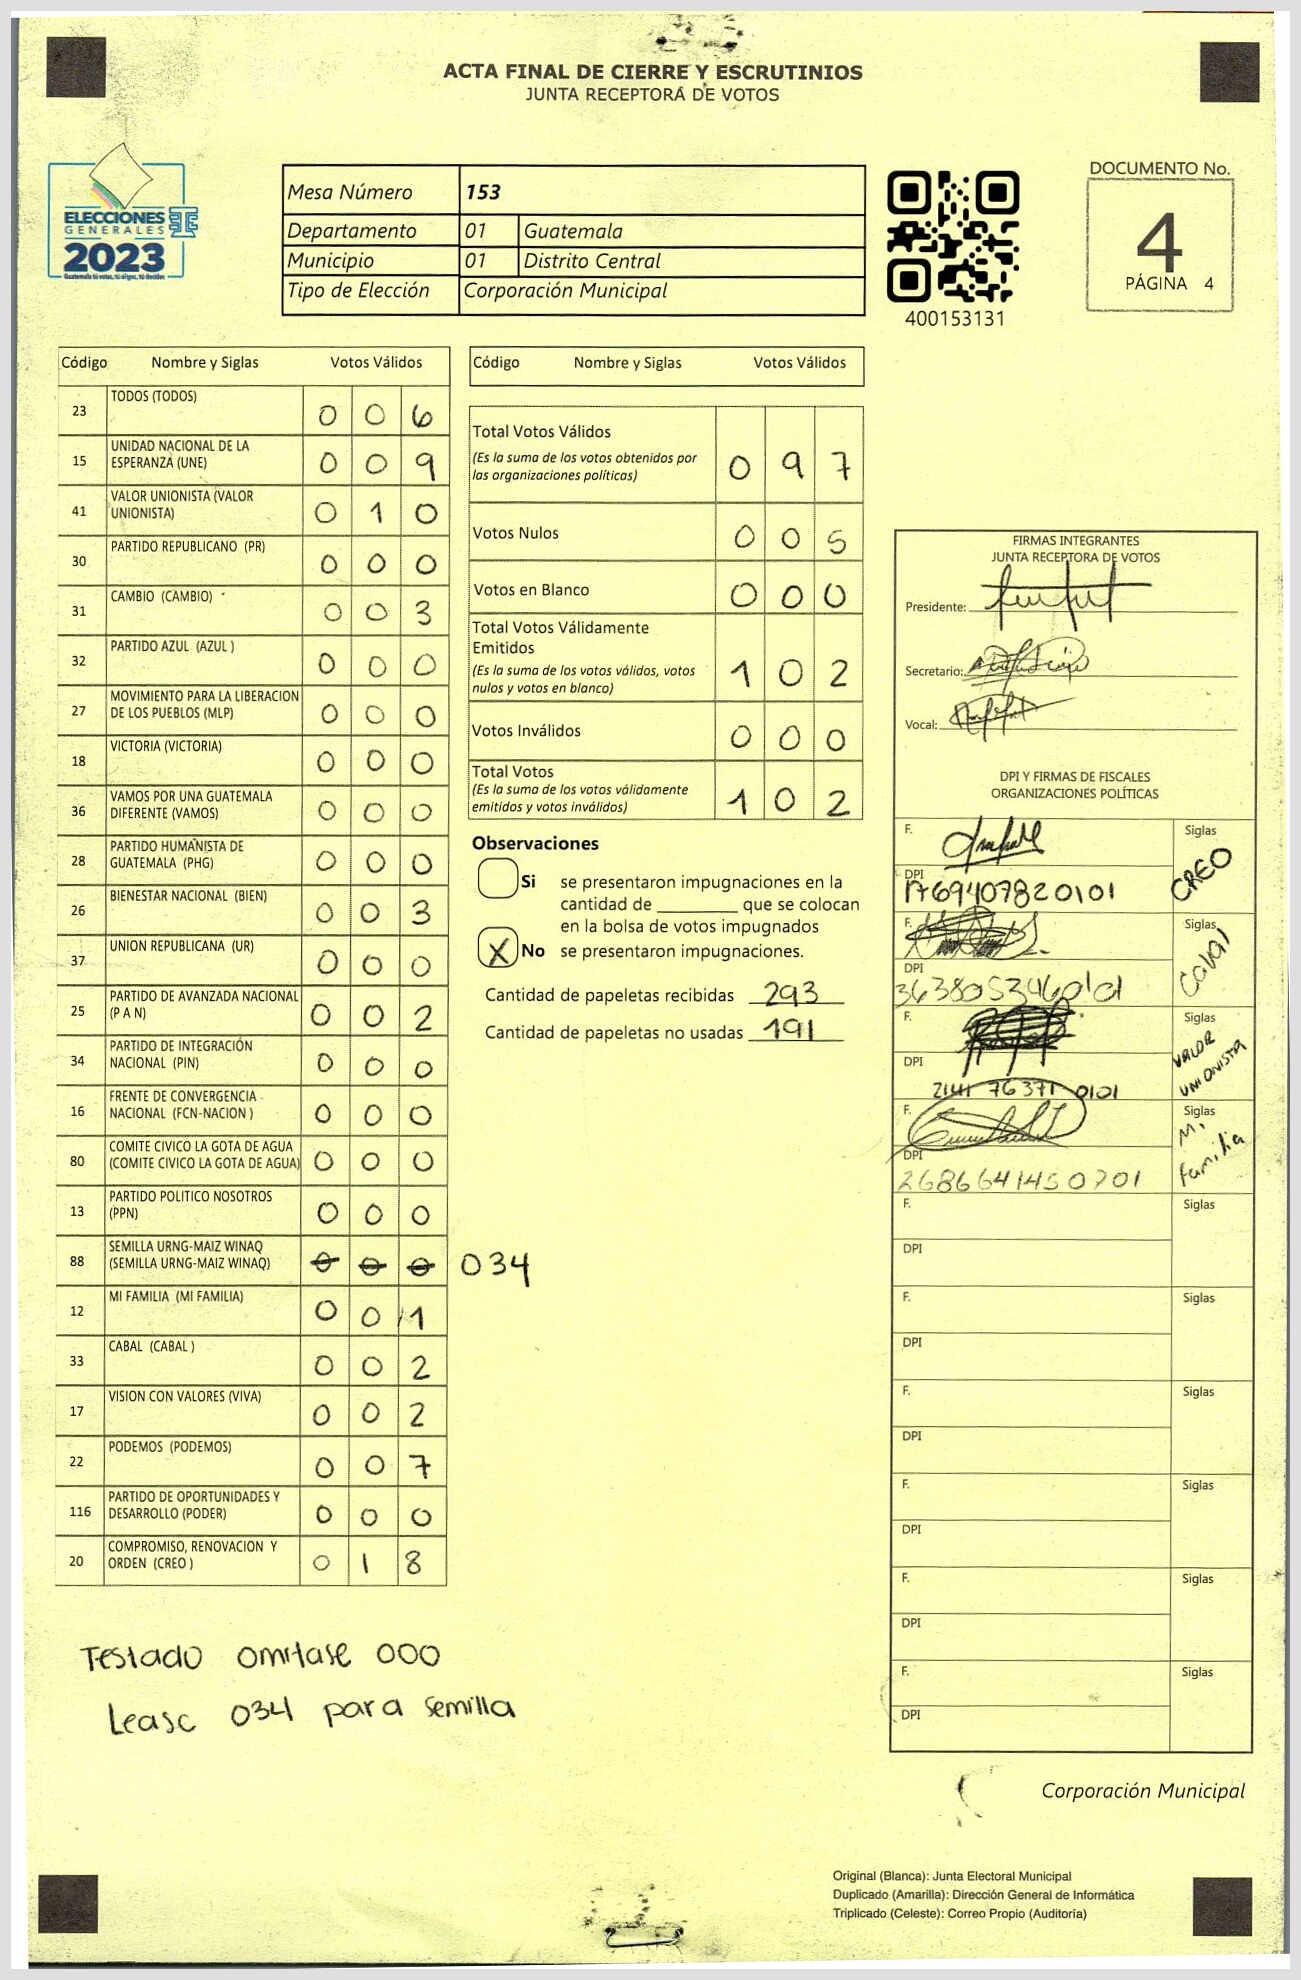 ACTA FINAL DE CIERRE Y ESCRUTINIOS
JUNTA RECEPTORA DE VOTOS
ELECCIONES
GENERALES
2023
Mesa Número 153
Departamento 01 Guatemala
Municipio 01 Distrito Central
Tipo de Elección Corporación Municipal
400153131
DOCUMENTO No.
4
PÁGINA 4
Código Nombre y Siglas Votos Válidos
23 TODOS (TODOS) 0 0 6
15 UNIDAD NACIONAL DE LA
ESPERANZA (UNE) 0 0 9
41 VALOR UNIONISTA (VALOR
UNIONISTA) 0 1 0
30 PARTIDO REPUBLICANO (PR) 0 0 0
31 CAMBIO (CAMBIO) 0 0 3
32 PARTIDO AZUL (AZUL ) 0 0 0
27 MOVIMIENTO PARA LA LIBERACION
DE LOS PUEBLOS (MLP) 0 0 0
18 VICTORIA (VICTORIA) 0 0 0
36 VAMOS POR UNA GUATEMALA
DIFERENTE (VAMOS) 0 0 0
28 PARTIDO HUMANISTA DE
GUATEMALA (PHG) 0 0 0
26 BIENESTAR NACIONAL (BIEN) 0 0 3
37 UNION REPUBLICANA (UR) 0 0 0
25 PARTIDO DE AVANZADA NACIONAL
(P A N) 0 0 2
34 PARTIDO DE INTEGRACIÓN
NACIONAL (PIN) 0 0 0
16 FRENTE DE CONVERGENCIA
NACIONAL (FCN-NACION ) 0 0 0
80 COMITE CIVICO LA GOTA DE AGUA
(COMITE CIVICO LA GOTA DE AGUA) 0 0 0
13 PARTIDO POLITICO NOSOTROS
(PPN) 0 0 0
88 SEMILLA URNG-MAIZ WINAQ
(SEMILLA URNG-MAIZ WINAQ) 0 0 0 034
12 MI FAMILIA (MI FAMILIA) 0 0 1
33 CABAL (CABAL ) 0 0 2
17 VISION CON VALORES (VIVA) 0 0 2
22 PODEMOS (PODEMOS) 0 0 7
116 PARTIDO DE OPORTUNIDADES Y
DESARROLLO (PODER) 0 0 0
20 COMPROMISO, RENOVACION Y
ORDEN (CREO ) 0 1 8
Testado omitase 000
Lease 034 para semilla
Código Nombre y Siglas Votos Válidos
Total Votos Válidos
(Es la suma de los votos obtenidos por
las organizaciones políticas) 0 9 7
Votos Nulos 0 0 5
Votos en Blanco 0 0 0
Total Votos Válidamente
Emitidos
(Es la suma de los votos válidos, votos
nulos y votos en blanco) 1 0 2
Votos Inválidos 0 0 0
Total Votos
(Es la suma de los votos válidamente
emitidos y votos inválidos) 1 0 2
Observaciones
Si se presentaron impugnaciones en la
cantidad de ________ que se colocan
en la bolsa de votos impugnados
X No se presentaron impugnaciones.
Cantidad de papeletas recibidas 293
Cantidad de papeletas no usadas 191
FIRMAS INTEGRANTES
JUNTA RECEPTORA DE VOTOS
Presidente:
Secretario:
Vocal:
DPI Y FIRMAS DE FISCALES
ORGANIZACIONES POLÍTICAS
F. Siglas CREO
DPI 1769407820101
F. Siglas Cabal
DPI 3638053460101
F. Siglas VALOR UNIONISTA
DPI 2141 76371 0101
F. Siglas M. familia
DPI 2686641450701
F. Siglas
DPI
F. Siglas
DPI
F. Siglas
DPI
F. Siglas
DPI
F. Siglas
DPI
F. Siglas
DPI
Corporación Municipal
Original (Blanca): Junta Electoral Municipal
Duplicado (Amarilla): Dirección General de Informática
Triplicado (Celeste): Correo Propio (Auditoría)